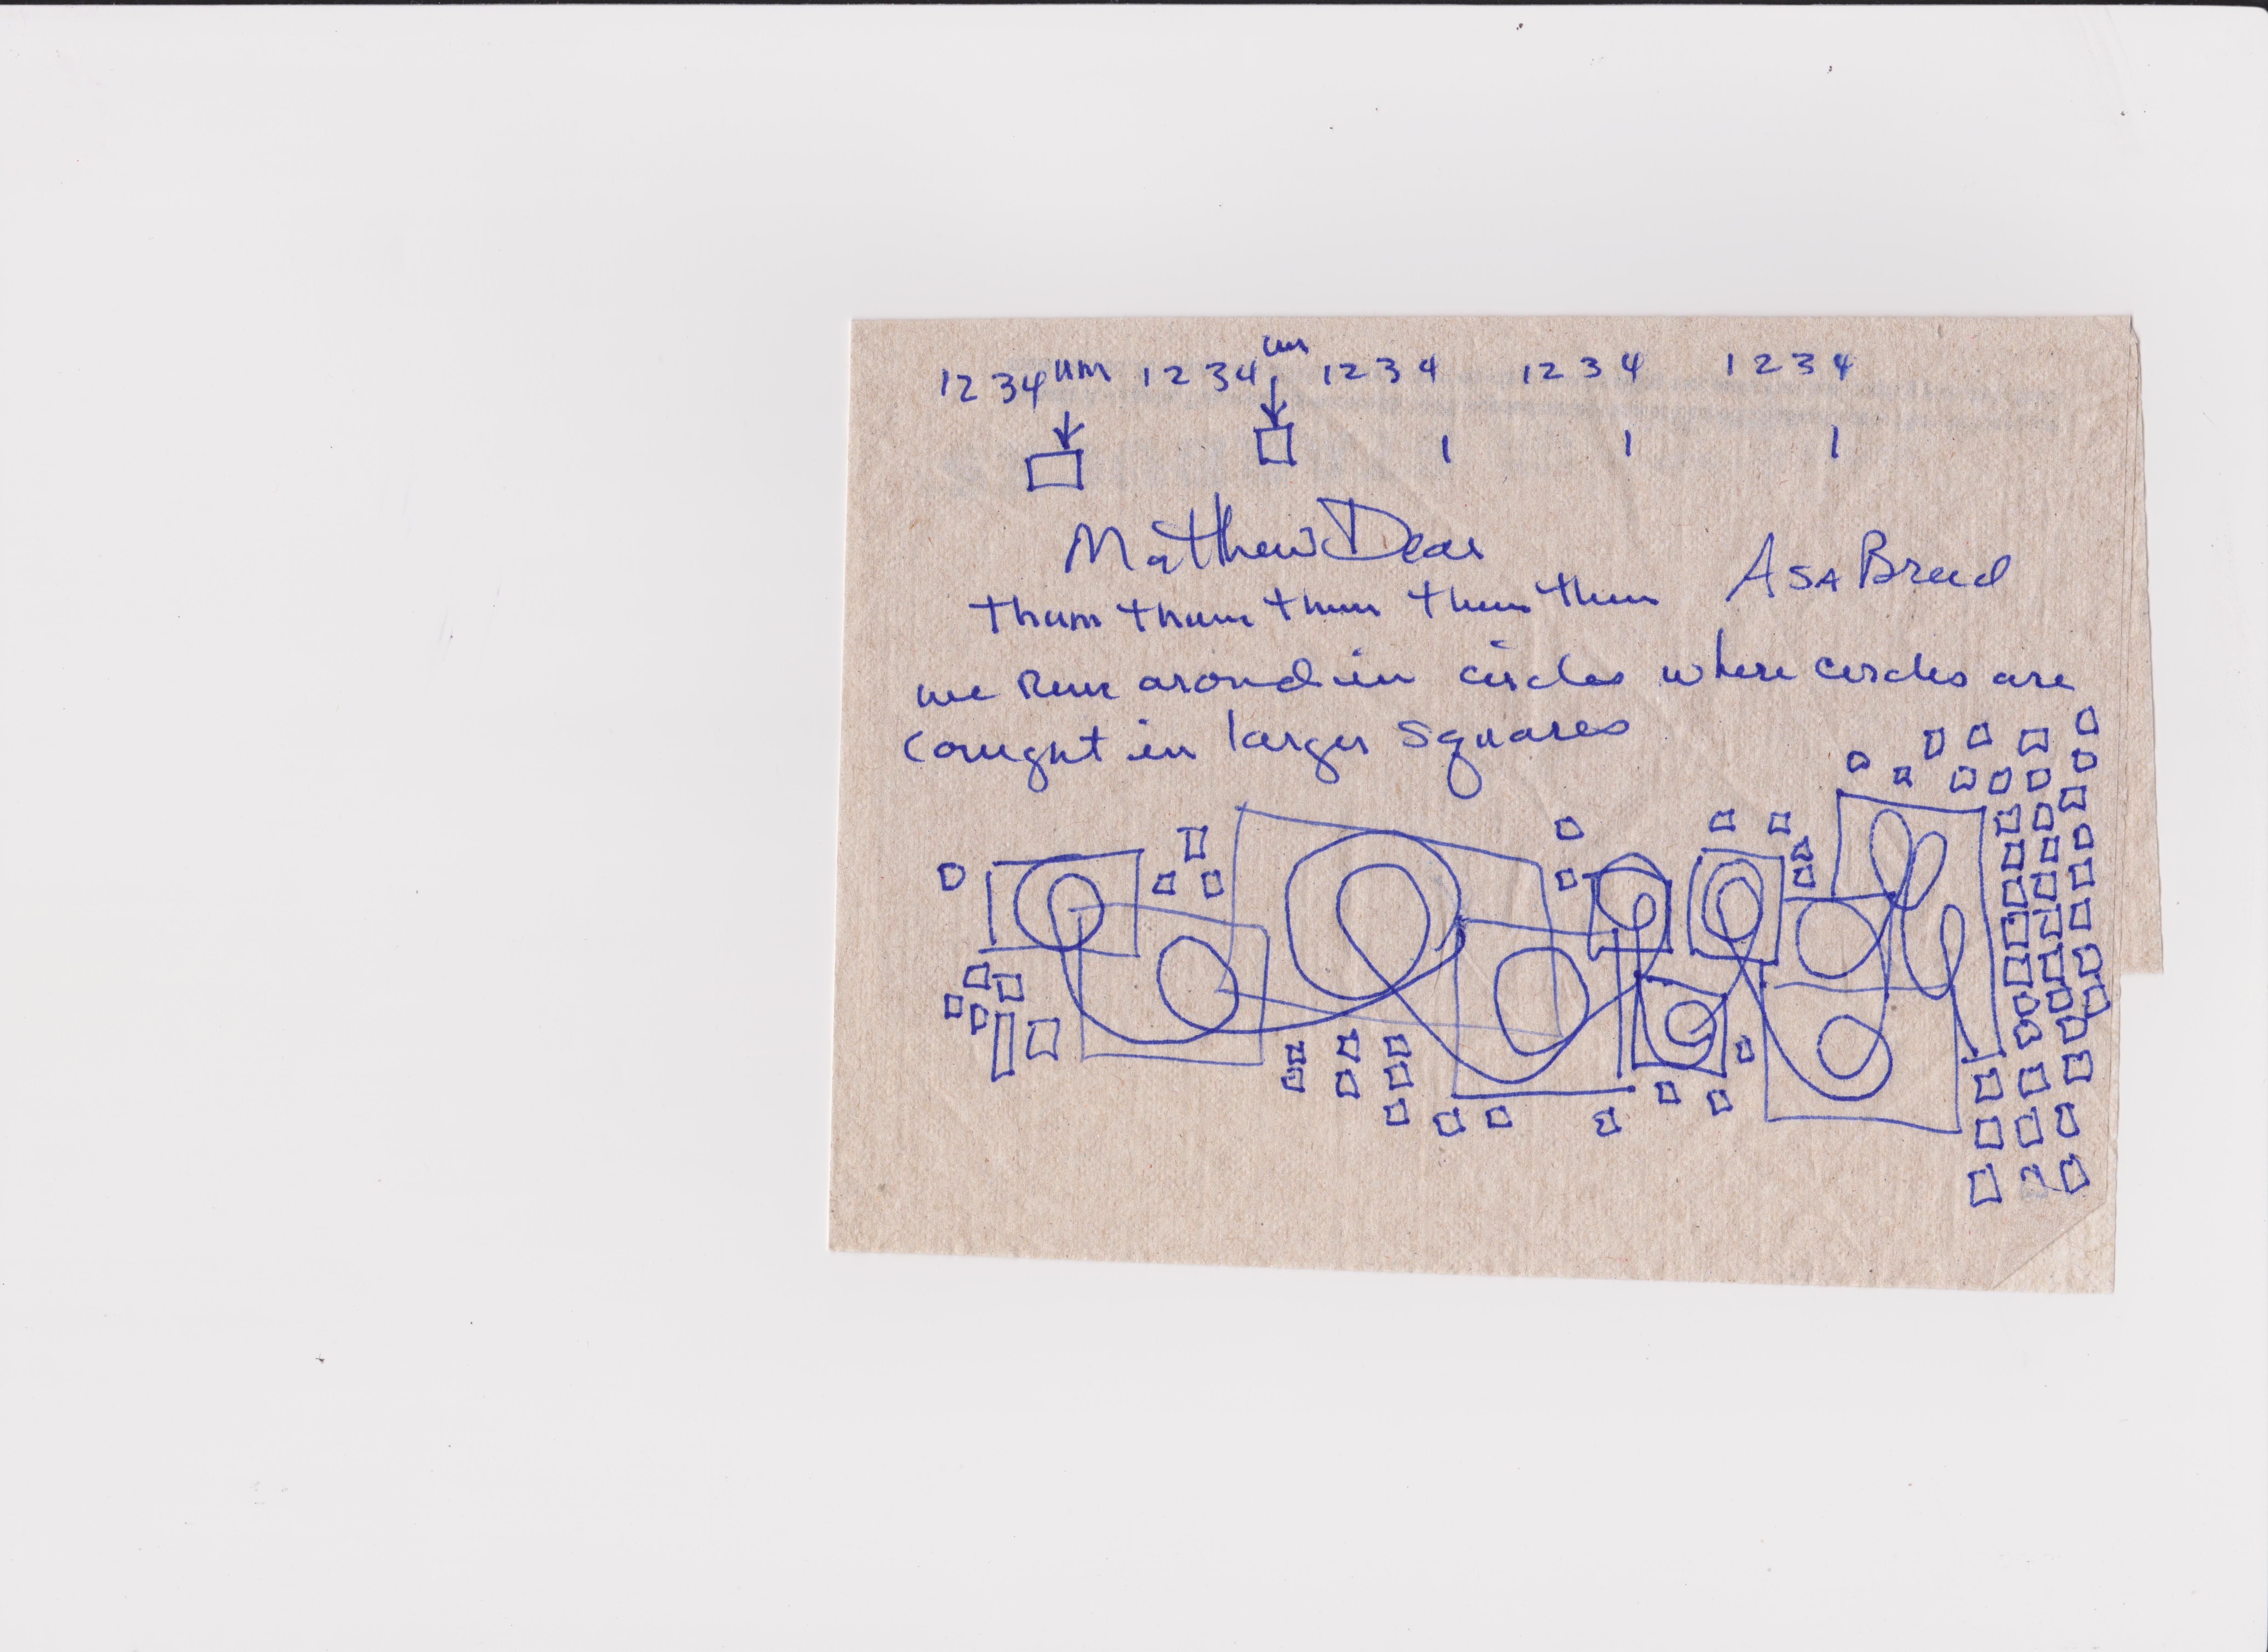 um
1234 um 1234 1234 1234 1234
1 1 1
Matthew Dear
Asa Breed
thum thum thum thum thum
we run around in circles where circles are
caught in larger squares